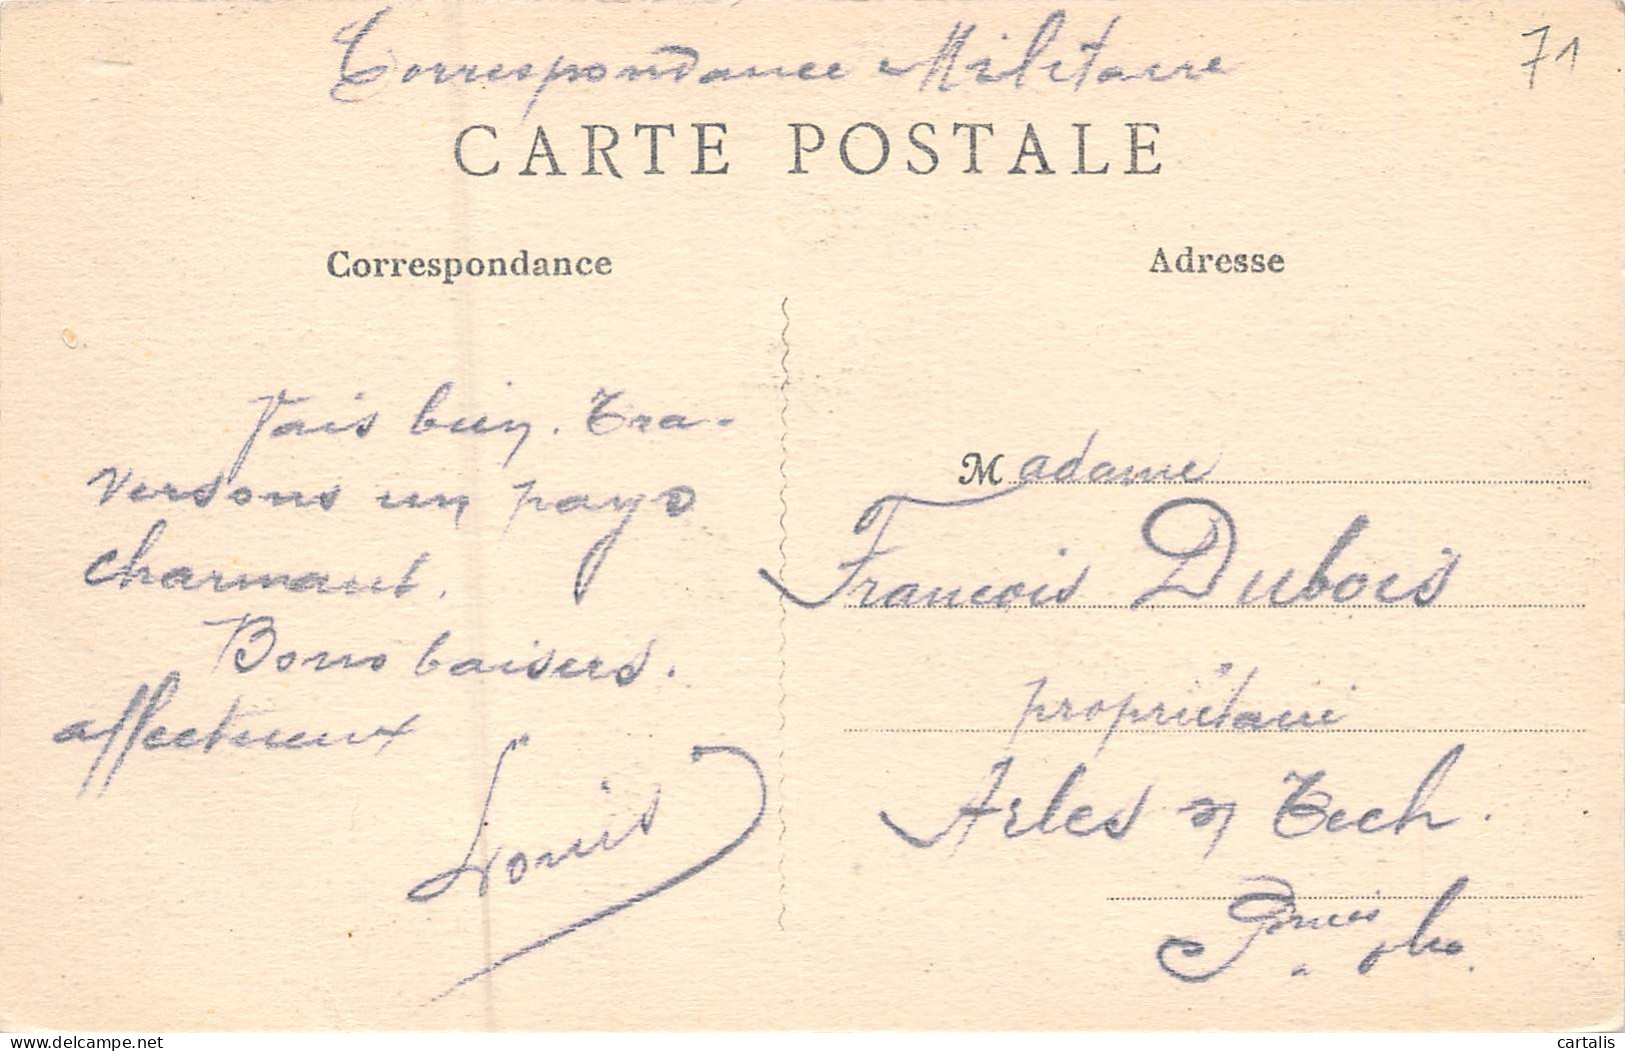 Correspondance Militaire
71
CARTE POSTALE
Correspondance
Vais bien. Tra-
versons un pays
charmant.
Bons baisers.
affectueux
Louis
Adresse
Madame
Francois Dubois
propriétaire
Arles s/ Tech.
cartalis